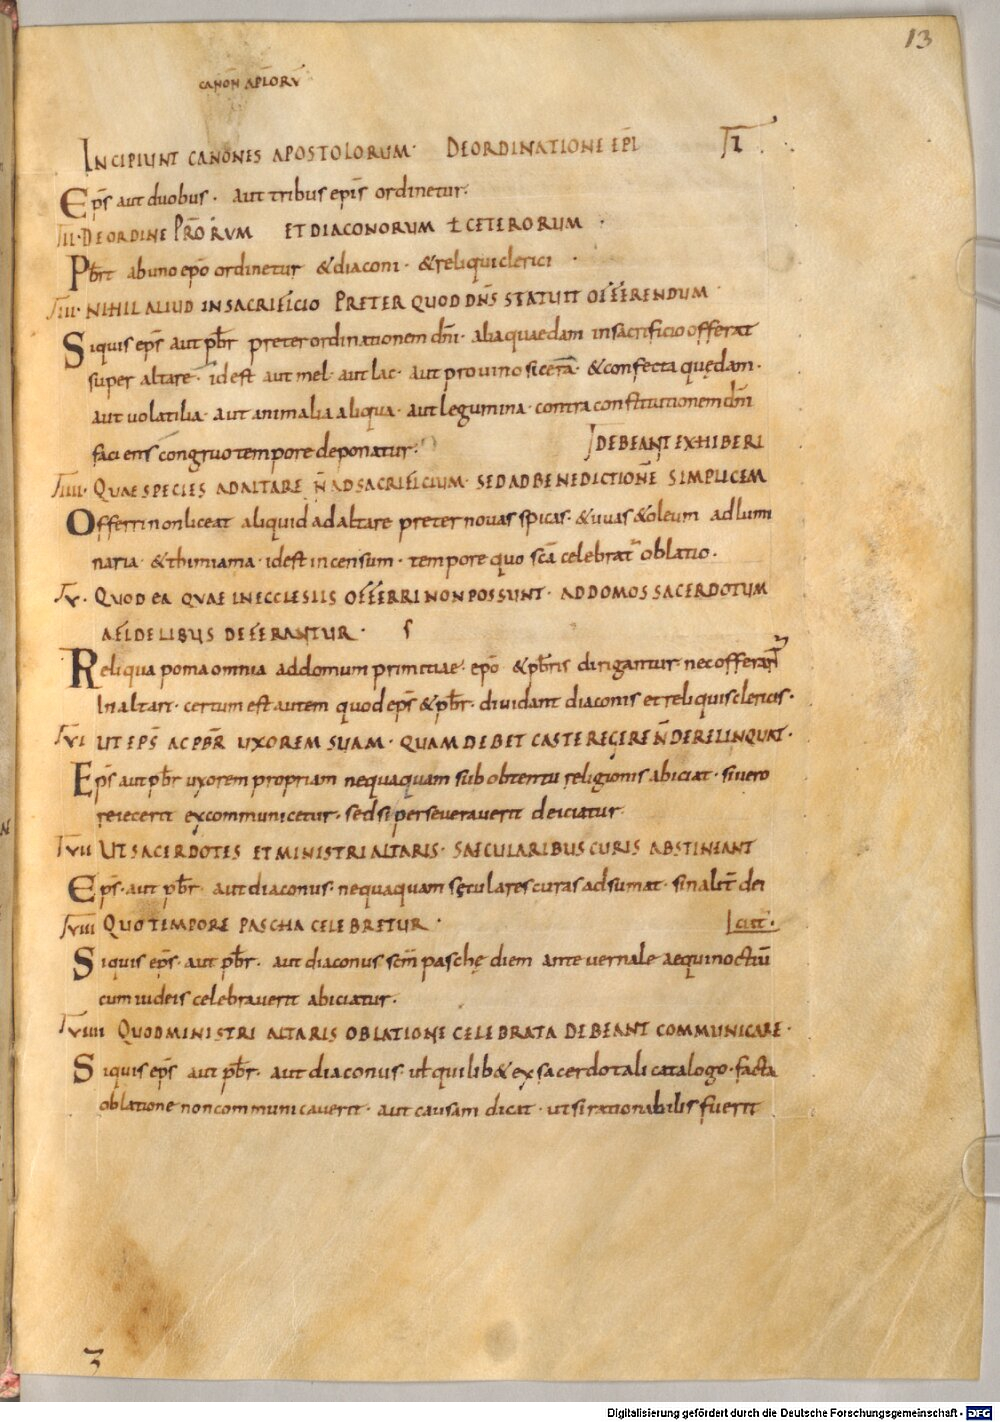 13
CANON APLORU
INCIPIUNT CANONES APOSTOLORUM· DE ORDINATIONE EPI I
Eps aut duobus· aut tribus epis ordinetur·
II· DE ORDINE PRORUM ET DIACONORUM ł CETERORUM·
Pbrt ab uno epo ordinetur & diaconi· & reliqui clerici·
III· NIHIL ALIUD IN SACRIFICIO PRETER QUOD DNS STATUIT OFFERENDUM·
Siquis eps aut pbr preter ordinationem dni· alia quaedam in sacrificio offerat
super altare· id est aut mel· aut lac· aut pro uino sicera· & confecta quędam·
aut uolatilia· aut animalia aliqua· aut legumina· contra constitutionem dni
faciens congruo tempore deponatur· DEBEANT EXHIBERI
IIII· QUAE SPECIES AD ALTARE N AD SACRIFICIUM· SED AD BENEDICTIONE SIMPLICEM
Offerri non liceat aliquid ad altare preter nouas spicas· & uuas & oleum ad lumi
naria· & thimiama· id est incensum· tempore quo sca celebrat oblatio·
V· QUOD EA QUAE IN ECCLESIIS OFFERRI NON POSSUNT· AD DOMOS SACERDOTUM
A FIDELIBUS DEFERANTUR·
Reliqua poma omnia ad domum primitiae· epo & pbris dirigantur nec offerant
In altari· certum est autem quod eps & pbr· diuidant diaconis et reliquis clericis·
VI UT EPS AC PBR UXOREM SUAM· QUAM DEBET CASTE REGERE N DERELINQUAT·
Eps aut pbr uxorem propriam nequaquam sub obtentu religionis abiciat· si uero
reiecerit excommunicetur· sed si perseuerauerit deiciatur·
VII UT SACERDOTES ET MINISTRI ALTARIS· SAECULARIBUS CURIS ABSTINEANT
Eps· aut pbr· aut diaconus· nequaquam sęculares curas adsumat· sin alit dei
VIII QUO TEMPORE PASCHA CELEBRETUR· ciat·
Siquis eps· aut pbr· aut diaconus scm paschę diem ante uernale aequinoctiu
cum iudeis celebrauerit abiciatur·
VIIII QUOD MINISTRI ALTARIS OBLATIONE CELEBRATA DEBEANT COMMUNICARE·
Siquis eps aut pbr· aut diaconus· uł quilib& ex sacerdotali catalogo· facta
oblatione non communicauerit· aut causam dicat· ut si rationabilis fuerit
3
Digitalisierung gefördert durch die Deutsche Forschungsgemeinschaft - DFG